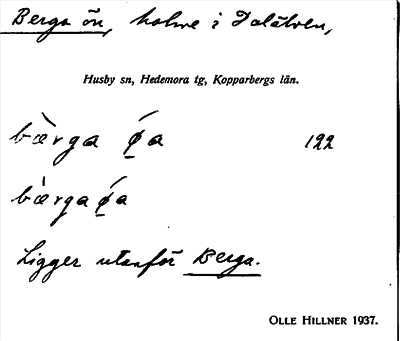 Berga ön, holme i Dalälven,
Husby sn, Hedemora tg, Kopparbergs län.
bæ̀rga ǿa 122
bæ̀rgaǿa
Ligger utanför Berga.
OLLE HILLNER 1937.